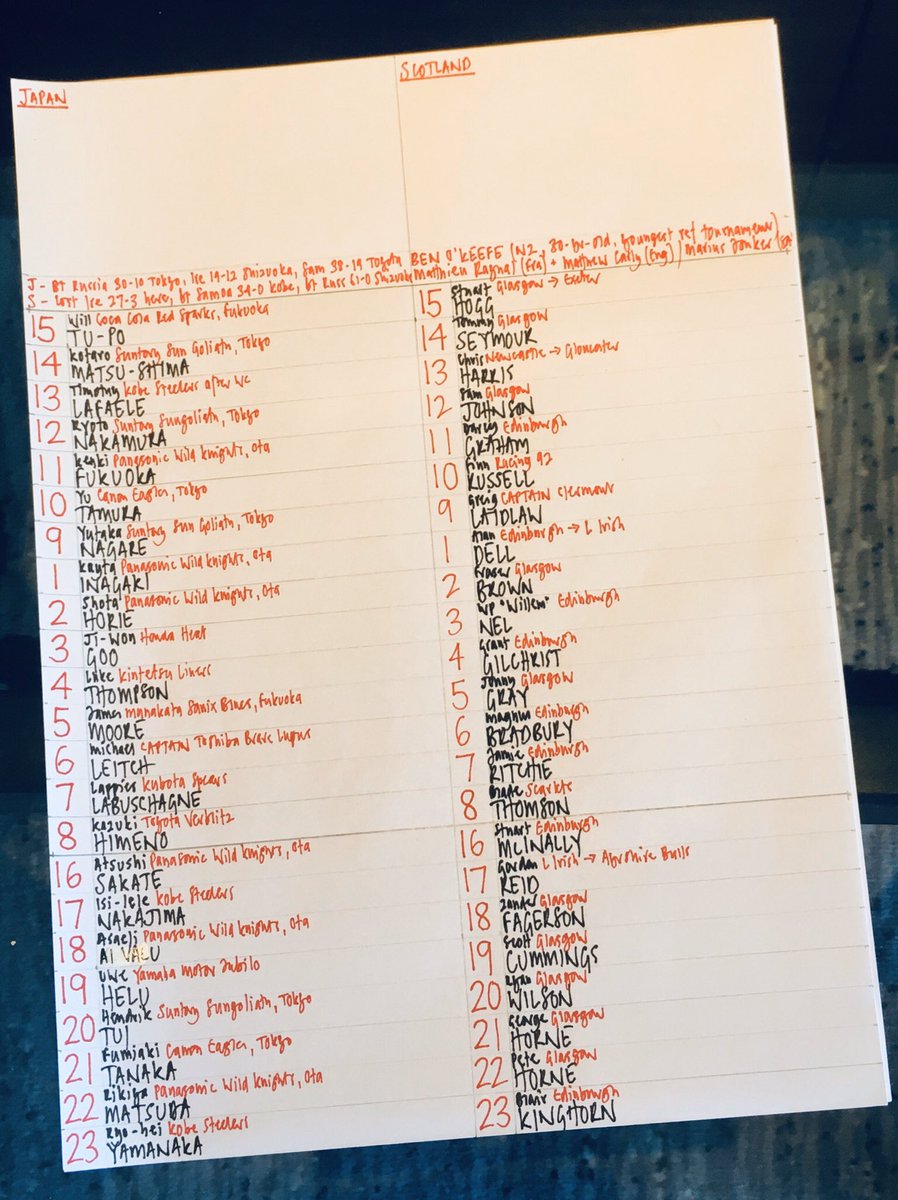 JAPAN
SCOTLAND
J - BT Russia 30-10 Tokyo, Ire 19-12 Shizuoka, Sam 38-19 Toyota
BEN O'KEEFE (NZ, 30-yr-old, youngest ref tournament)
S - Lost Ire 27-3 here, bt Samoa 34-0 Kobe, bt Russ 61-0 Shizuok
Matthieu Raynal (Fra) + Matthew Carley (Eng) / Marius Jonker (SA
15 Will Coca Cola Red Sparks, Fukuoka
TU-PO
14 Kotaro Suntory Sun Goliath, Tokyo
MATSU-SHIMA
13 Timothy Kobe Steelers after WC
LAFAELE
12 Ryoto Suntory Sungoliath, Tokyo
NAKAMURA
11 Kenki Panasonic Wild Knights, Ota
FUKUOKA
10 Yu Canon Eagles, Tokyo
TAMURA
9 Yutaka Suntory Sun Goliath, Tokyo
NAGARE
1 Kauta Panasonic Wild Knights, Ota
INAGAKI
2 Shota Panasonic Wild Knights, Ota
HORIE
3 Ji-Won Honda Heat
GOO
4 Luke Kintetsu Liners
THOMPSON
5 James Munakata Sanix Blues, Fukuoka
MOORE
6 Michael CAPTAIN Toshiba Brave Lupus
LEITCH
7 Lappies Kubota Spears
LABUSCHAGNE
8 Kazuki Toyota Verblitz
HIMENO
16 Atsushi Panasonic Wild Knights, Ota
SAKATE
17 Isi-lele Kobe Steelers
NAKAJIMA
18 Asaeli Panasonic Wild Knights, Ota
AI VALU
19 Uwe Yamaha Motor Jubilo
HELU
20 Hendrik Suntory Sungoliath, Tokyo
TUI
21 Fumiaki Canon Eagles, Tokyo
TANAKA
22 Rikiya Panasonic Wild Knights, Ota
MATSUDA
23 Ryo-hei Kobe Steelers
YAMANAKA
15 Stuart Glasgow → Exeter
HOGG
14 Tommy Glasgow
SEYMOUR
13 Chris Newcastle → Gloucester
HARRIS
12 Sam Glasgow
JOHNSON
11 Darcy Edinburgh
GRAHAM
10 Finn Racing 92
RUSSELL
9 Greig CAPTAIN Clermont
LAIDLAW
1 Allan Edinburgh → L Irish
DELL
2 Fraser Glasgow
BROWN
3 WP "Willem" Edinburgh
NEL
4 Grant Edinburgh
GILCHRIST
5 Jonny Glasgow
GRAY
6 Magnus Edinburgh
BRADBURY
7 Jamie Edinburgh
RITCHIE
8 Blade Scarlets
THOMSON
16 Stuart Edinburgh
MCINALLY
17 Gordon L Irish → Ayrshire Bulls
REID
18 Zander Glasgow
FAGERSON
19 Scott Glasgow
CUMMINGS
20 Ryan Glasgow
WILSON
21 George Glasgow
HORNE
22 Pete Glasgow
HORNE
23 Blair Edinburgh
KINGHORN